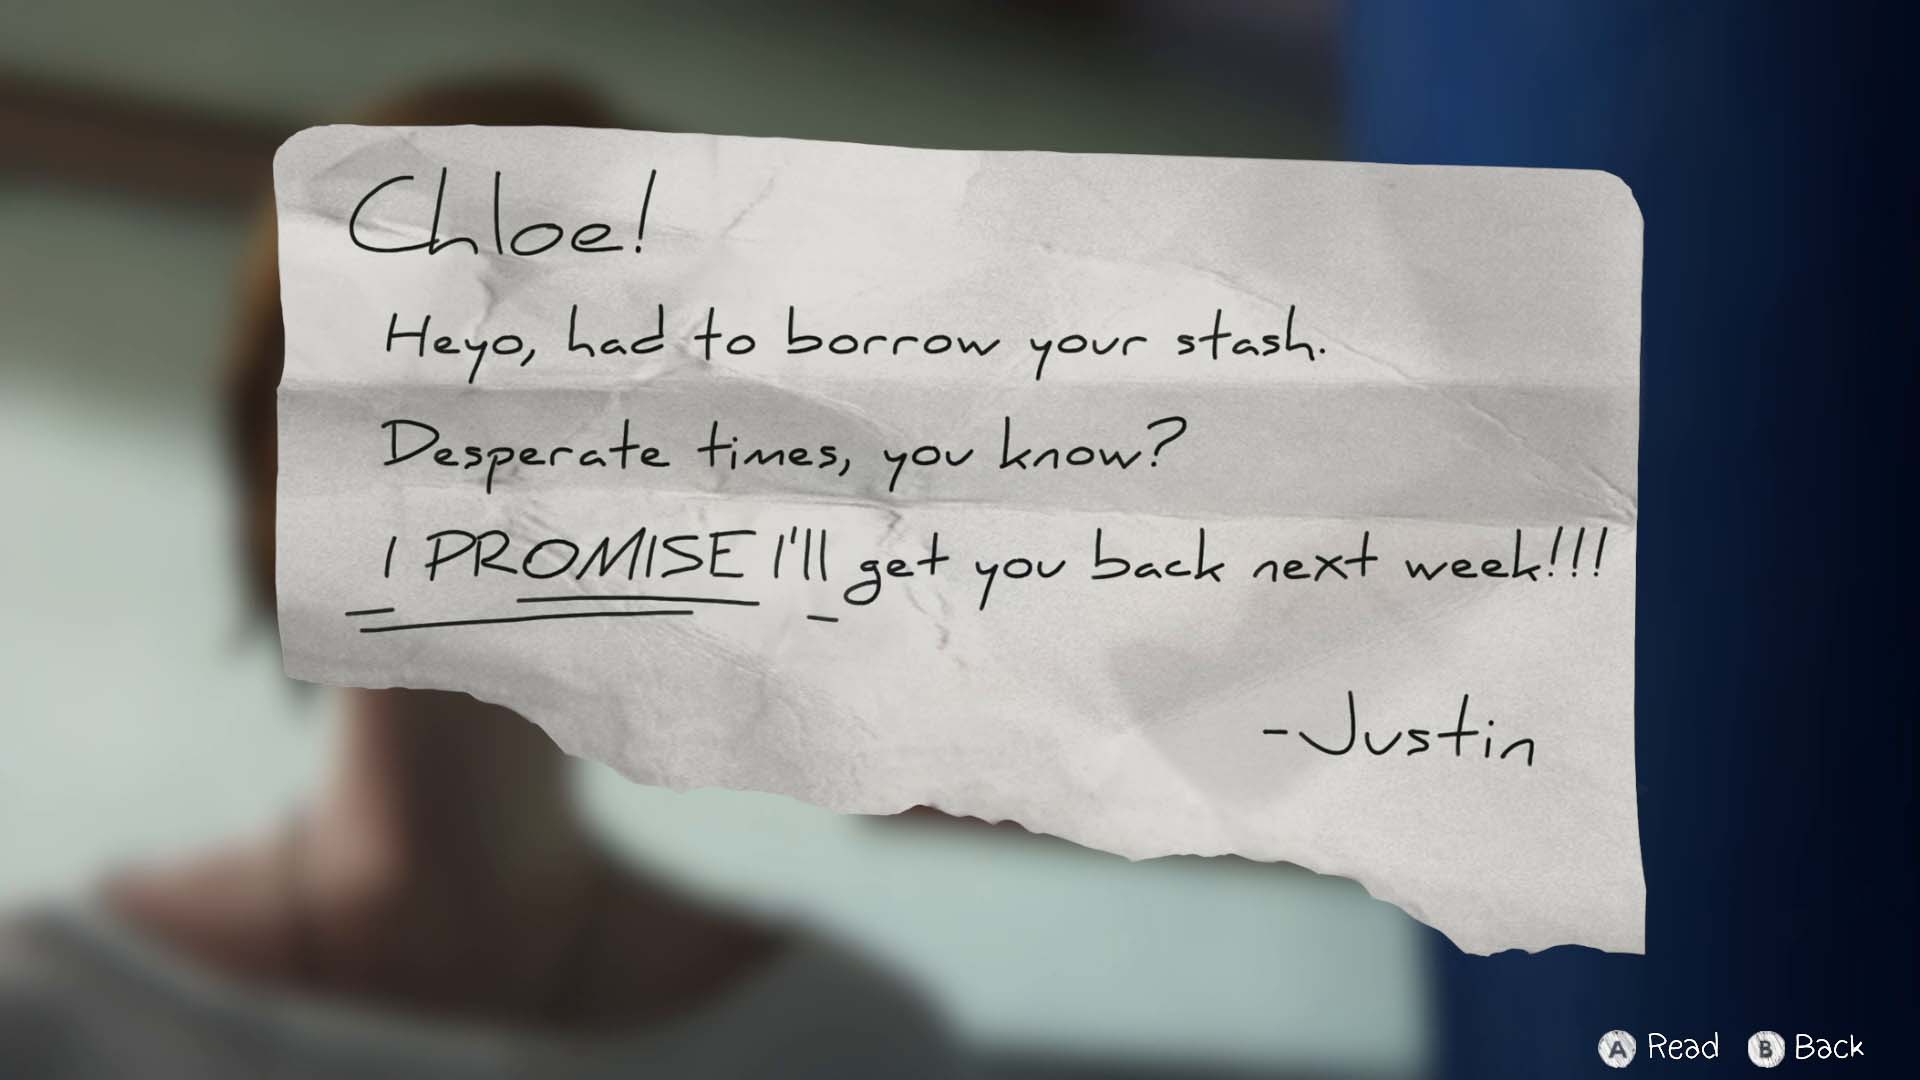 Chloe!
Heyo, had to borrow your stash.
Desperate times, you know?
I PROMISE I'll get you back next week!!!
-Justin
A Read B Back